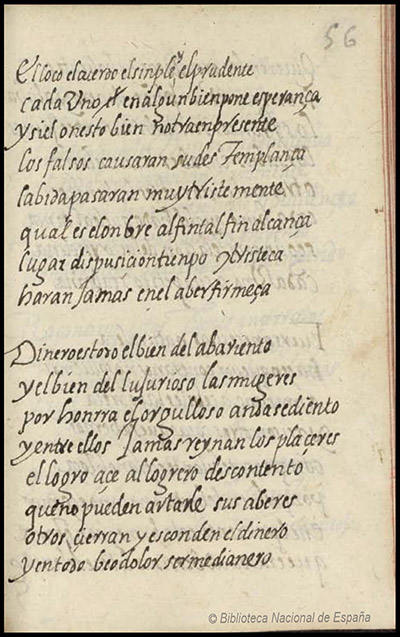 56
El loco el cuerdo el sinple y el prudente
cada Uno en algun bien pone esperança
y si el onesto bien no traen presente
los falsos causaran su des Templança
la bida pasaran muy tristemente
qual es el onbre al fin tal fin alcança
lugar dispusicion tienpo y tristeca
haran Jamas en el aber firmeça
Dinero estoro el bien del abariento
y el bien del lusurioso las mugeres
por honrra el orgulloso anda sediento
y entre ellos Jamas reynan los plaçeres
el logro açe al logrero descontento
que no pueden artarle sus aberes
otros çierran y esconden el dinero
y en todo beo dolor ser medianero
© Biblioteca Nacional de España